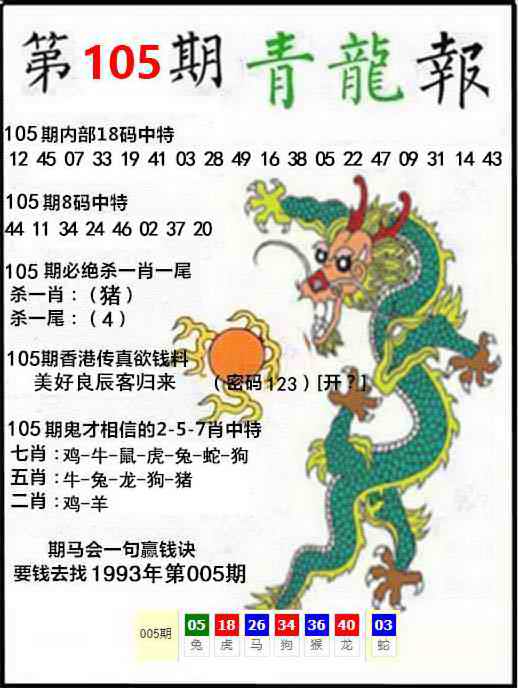 第105期青龍報
105期内部18码中特
12 45 07 33 19 41 03 28 49 16 38 05 22 47 09 31 14 43
105期8码中特
44 11 34 24 46 02 37 20
105 期必绝杀一肖一尾
杀一肖：（猪）
杀一尾：（4）
105期香港传真欲钱料
美好良辰客归来 （密码123）[开？]
105期鬼才相信的2-5-7肖中特
七肖：鸡-牛-鼠-虎-兔-蛇-狗
五肖：牛-兔-龙-狗-猪
二肖：鸡-羊
期马会一句赢钱诀
要钱去找1993年第005期
005期 05 18 26 34 36 40 03
兔 虎 马 狗 猴 龙 蛇